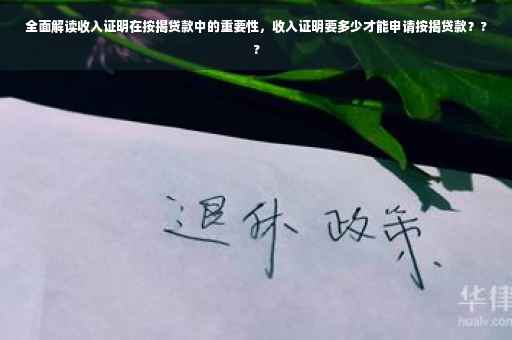 全面解读收入证明在按揭贷款中的重要性，收入证明要多少才能申请按揭贷款？？
？
退休 政策
华律
hualv.com